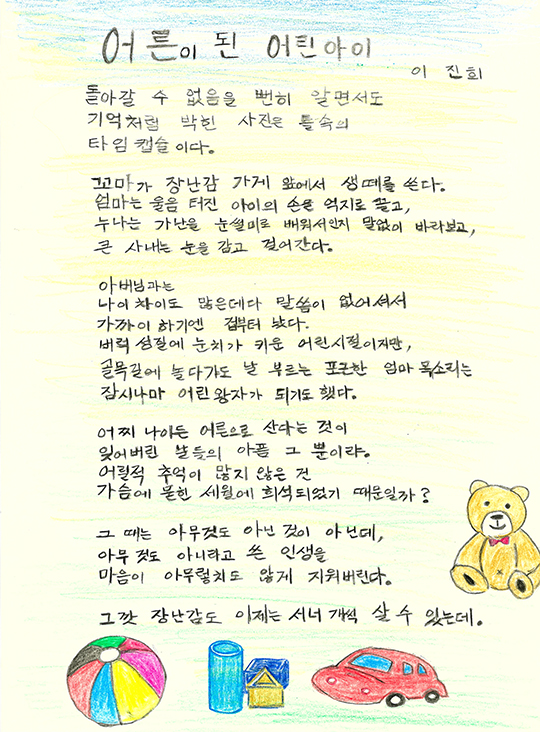 어른이 된 어린아이
이 진희
돌아갈 수 없음을 뻔히 알면서도
기억처럼 박힌 사진은 틀속의
타임캡슐이다.
꼬마가 장난감 가게 앞에서 생떼를 쓴다.
엄마는 울음 터진 아이의 손을 억지로 끌고,
누나는 가난을 눈썰미로 배워서인지 말없이 바라보고,
큰 사내는 눈을 감고 걸어간다.
아버님과는
나이차이도 많은데다 말씀이 없어셔서
가까이 하기엔 겁부터 났다.
버럭 성질에 눈치가 키운 어린시절이지만,
골목길에 놀다가도 날 부르는 포근한 엄마 목소리는
잠시나마 어린왕자가 되기도 했다.
어찌 나이든 어른으로 산다는 것이
잊어버린 날들의 아픔 그 뿐이랴.
어릴적 추억이 많지 않은 건
가슴에 묻힌 세월에 희석되었기 때문일까?
그 때는 아무것도 아닌 것이 아닌데,
아무 것도 아니라고 쓴 인생을
마음이 아무렇치도 않게 지워버린다.
그깟 장난감도 이제는 서너 개씩 살 수 있는데.